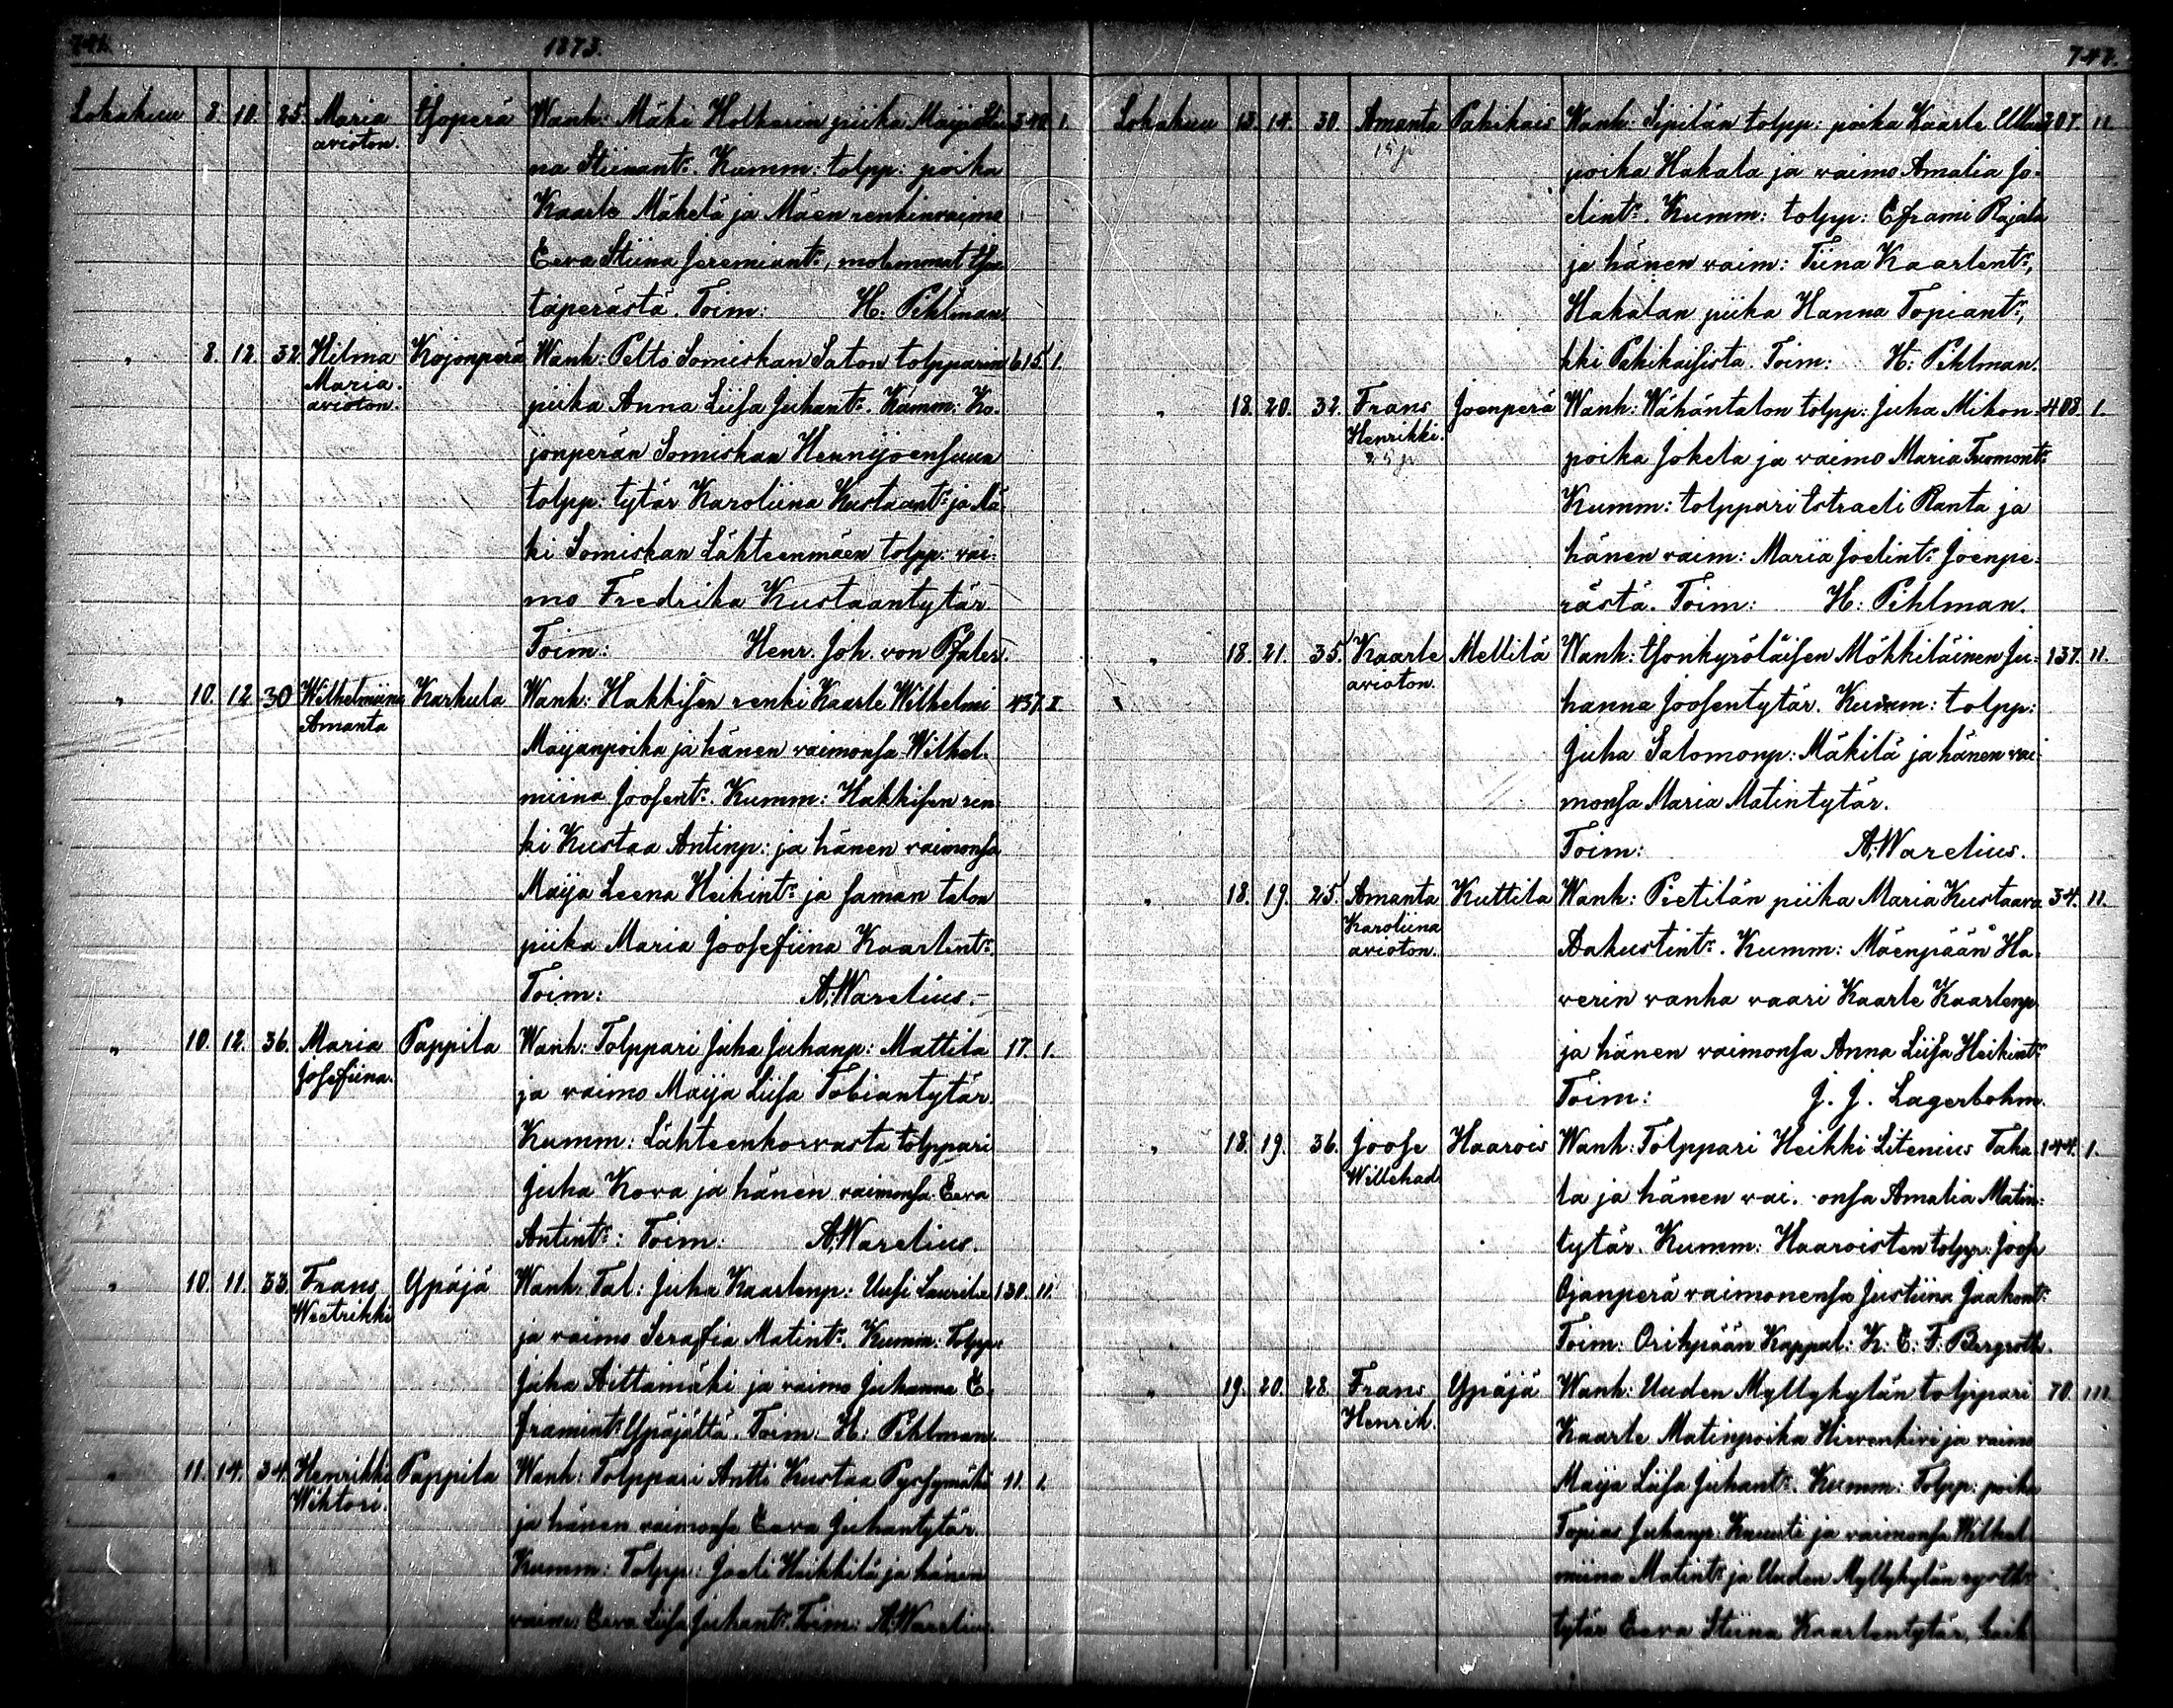 741. 1873.
Lokakuu 8. 10. 25. Maria Isoperä Wanh: Mäki Holkarin piika Maija Sti- 340. 1.
avioton. na Stiinant: Kumm: tolpp: poika
Kaarle Mäkelä ja Mäen renkinvaimo
Eeva Stiina Jeremiant:, molemmat Iso-
täperästä. Toim: H. Pihlman.
" 8. 12. 32. Hilma Kojonperä Wanh: Pelto Somiskan Saton tolpparin 615. 1.
Maria.
avioton. piika Anna Liisa Juhant: Kumm: Ko-
jonperän Somiskan Hennijoensuun
tolpp: tytär Karoliina Kustaant: ja Mä-
ki Somiskan Lähteenmäen tolpp: vai-
mo Fredrika Kustaantytär
Toim: Henr. Joh. von Pfaler.
" 10. 12. 30 Wilhelmiina Karhula Wanh: Hakkisen renki Kaarle Wilhelmi 437. I
Amanta Maijanpoika ja hänen vaimonsa Wilhel-
miina Joosent: Kumm: Hakkisen ren-
ki Kustaa Antinp: ja hänen vaimonsa
Maija Leena Heikint: ja saman talon
piika Maria Joosefiina Kaarlent:
Toim: A. Warelius.
" 10. 12. 36. Maria Pappila Wanh: Tolppari Juha Juhanp: Mattila 17. 1.
Josefiina. ja vaimo Maija Liisa Tobiantytär.
Kumm: Lähteenkorvasta tolppari
Juha Kova ja hänen vaimonsa Eeva
Antint: Toim: A. Warelius.
" 10. 11. 33. Frans Ypäjä Wanh: Tal: Juha Kaarlenp: Uusi Laurila 130. 11.
Wretrikki ja vaimo Serafia Matint: Kumm: Tolpp:
Juha Aittamäki ja vaimo Juhanna E-
framint: Ypäjältä. Toim: H. Pihlman.
" 11. 14. 34. Henrikki Pappila Wanh: Tolppari Antti Kustaa Pyssymäki 11. 1.
Wihtori. ja hänen vaimonsa Eeva Juhantytär.
Kumm: Tolpp: Joeli Heikkilä ja hänen
vaim: Eeva Liisa Juhant: Toim: A. Warelius.
742.
Lokakuu 13. 14. 30. Amanta Pahikais Wanh: Sipilän tolpp: poika Kaarle 207. 11.
poika Hakala ja vaimo Amalia Jo-
elint: Kumm: tolpp: Eframi Rajala
ja hänen vaim: Tiina Kaarlent:,
Hakalan piika Hanna Topiant:,
kki Pahikaisista. Toim: H. Pihlman.
" 18. 20. 32. Frans Joenperä Wanh: Wähäntalon tolpp: Juha Mikon- 408. 1.
Henrikki. poika Jokela ja vaimo Maria Tuomont:
Kumm: tolppari Istraeli Ranta ja
hänen vaim: Maria Joelint: Joenpe-
rästä. Toim: H. Pihlman.
" 18. 21. 35. Kaarle Mellilä Wanh: Isonkyröläisen Mökkiläinen Ju- 137. 11.
avioton. hanna Joosentytär. Kumm: tolpp:
Juha Salomonp: Mäkilä ja hänen vai-
monsa Maria Matintytär.
Toim: A. Warelius.
" 18. 19. 25. Amanta Kuttila Wanh: Pietilän piika Maria Kustaava 34. 11.
Karoliina
avioton. Aakustint: Kumm: Mäenpään Ha-
verin vanha vaari Kaarle Kaarlenp
ja hänen vaimonsa Anna Liisa Heikint:
Toim: J. J. Lagerbohm.
" 18. 19. 36. Joose Haarois Wanh: Tolppari Heikki Litenius Taka- 144. 1.
Willehad la ja hänen vai. onsa Amalia Matin-
tytär. Kumm: Haaroisten tolpp: Joose
Ojanperä vaimonensa Justiina Jaakont:
Toim: Orihpään Kappal: K. E. F. Bergroth.
" 19. 20. 28. Frans Ypäjä Wanh: Uuden Myllykylän tolppari 70. 111.
Henrik. Kaarle Matinpoika Hirvenkivi ja vaimo
Maija Liisa Juhant: Kumm: Tolpp: poika
Topias Juhanp: Knuuti ja vaimonsa Wilhel-
miina Matint: ja Uuden Myllykylän
tytär Eeva Stiina Kaarlentytär, kaik-